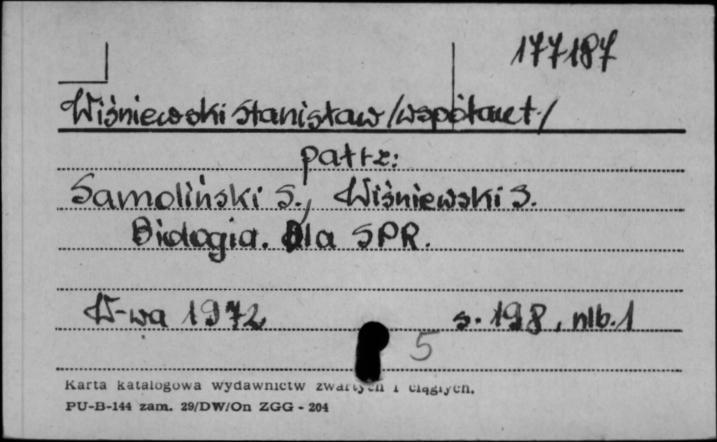 177187
Wiśniewski Stanisław /współaut./
patrz:
Samoliński S., Wiśniewski S.
Biologia. Dla SPR.
W-wa 1972 s. 198, nlb. 1
5
Karta katalogowa wydawnictw zwartych i ciągłych.
PU-B-144 zam. 29/DW/On ZGG - 204